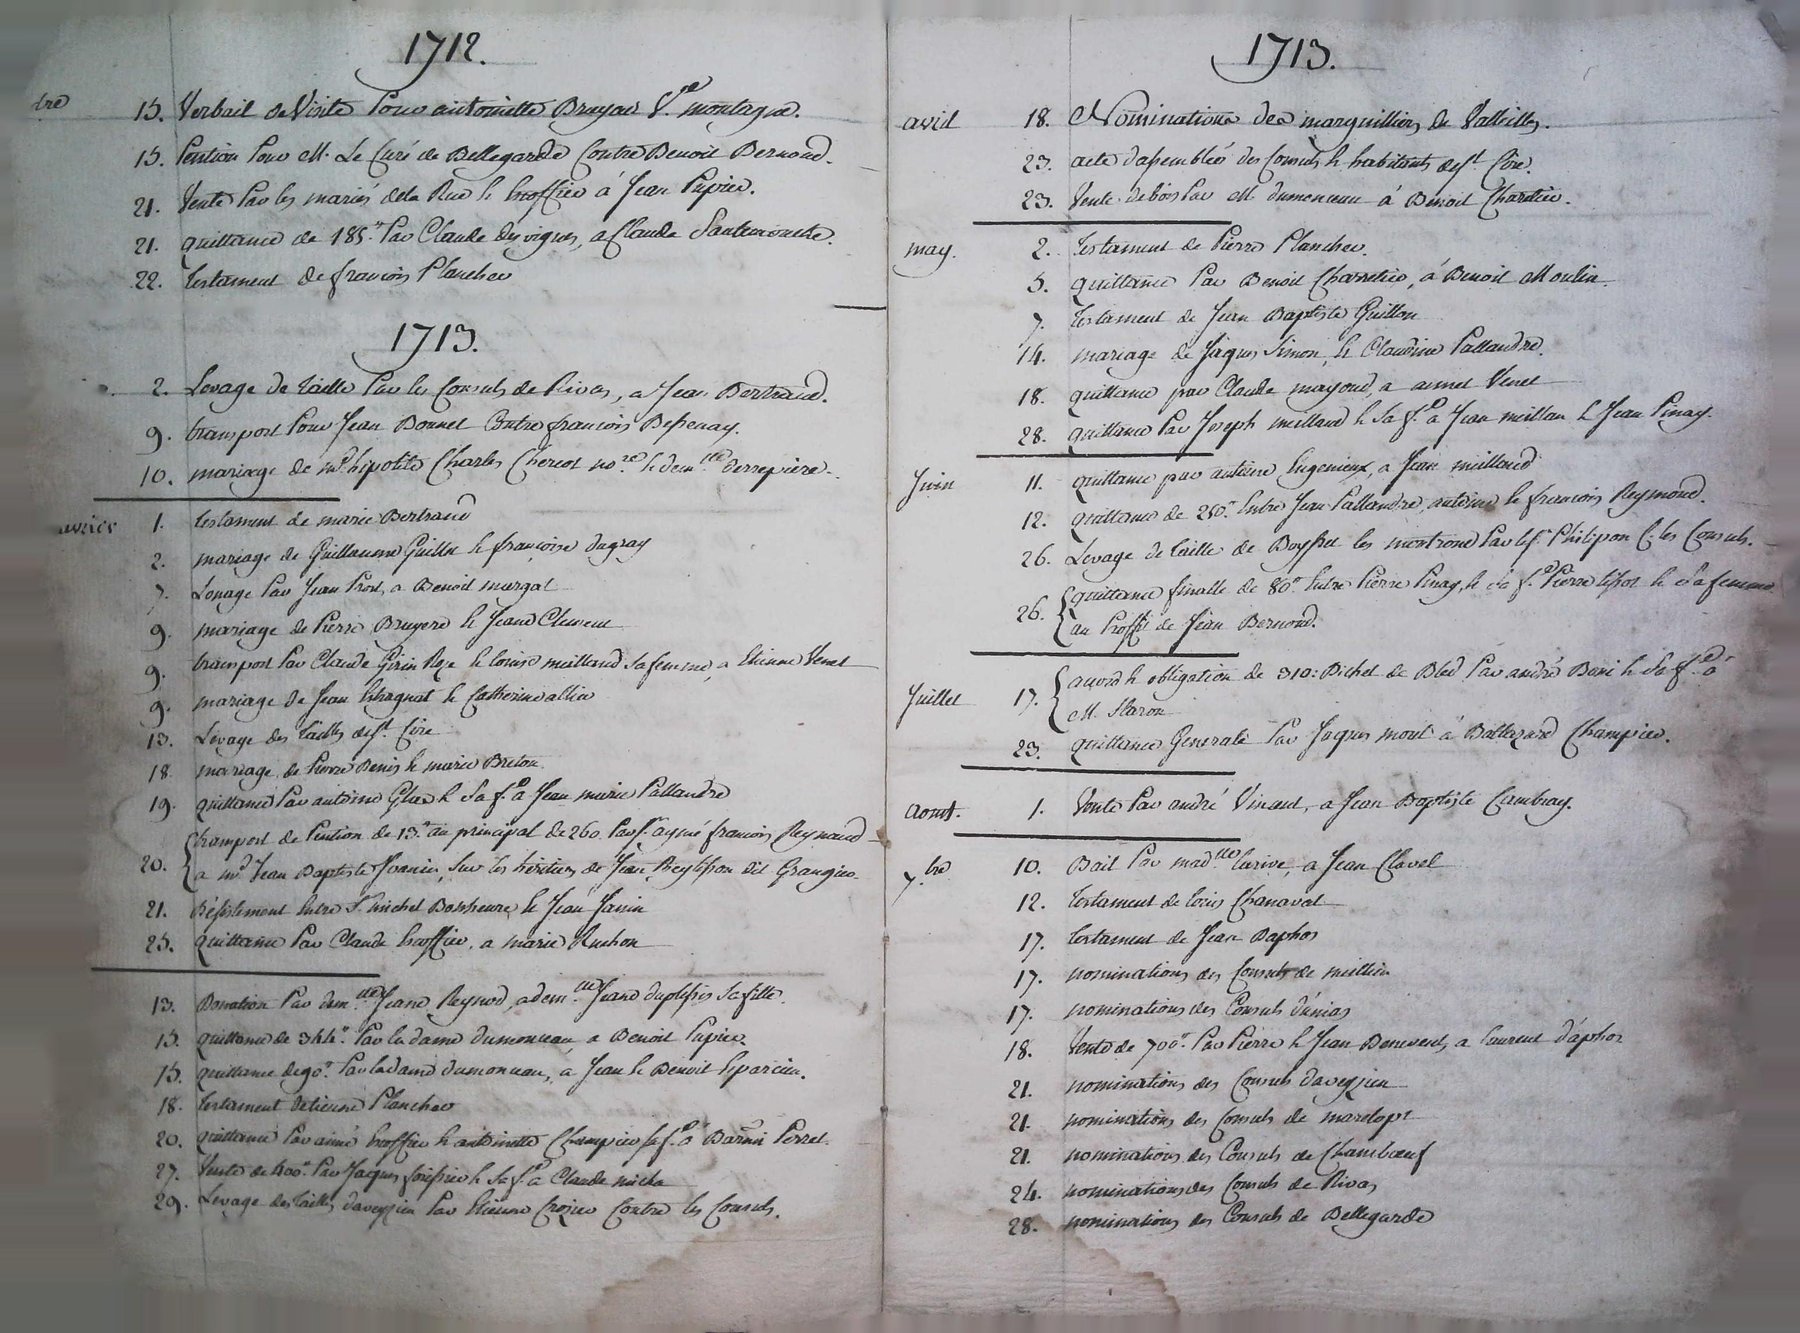 1712.
bre
15. Verbail de Visite Pour antoinette Bruyas Ve. montagne.
15. Pention Pour M. Le Curé de Bellegarde Contre Benoit Bernond.
21. Vente Par les mariés dela Rue & hoffier á Jean Pupier.
21. quittance de 185.tt Par Claude desvignes, a Claude Santemouche.
22. testament de françois Plancher
1713.
2. Levage de taille Par les Consuls de Rivas, a Jean Bertrand.
9. transport Pour Jean Bonnet Contre françois Bessenay.
10. mariage de mr. hipolite Charles Chercot nore. & demlle. derrepiere.
1. testament de marie Bertrand
2. mariage de Guillaume Guillot & françoise dugray
7. Louage Par Jean Prost, a Benoit murgat
9. mariage de Pierre Bruyere & Jeane Clement
9. transport Par Claude Girin Roze & Louise meilland sa femme, a Etienne Venet
9. mariage de Jean & Catherine allier
13. Levage des tailles de St. Cire
18. mariage de Pierre Denis & marie Breton.
19. quittance Par antoine & sa fe. a Jean marie Pallandre
20. transport de Pention de 13.tt au principal de 260. Par Sr. aymé francois Reynaud
a mr. Jean Baptiste, Sur les héritiers de Jean dit Grangier.
21. Désistement Entre Sr. michel Bonheure & Jean Janin
25. quittance Par Claude hoffier, a marie
13. Donation Par demlle. Jeane Reynod, a demlle. Jeane duplessis Sa fille.
15. quittance de 344.tt Par la dame dumonceau, a Benoit Pupier.
15. quittance de 90.tt Par la dame dumonceau, á Jean & Benoit
18. testament detienne Plancher
20. quittance Par aimé hoffier & antoinette Champier sa fe. á Perret.
27. Vente de 400.tt Par Jacques & sa fe. á Claude
29. Levage des tailles daveyzieu Par Etienne Crozier Contre les Consuls.
1713.
avril 18. Nominations des marguilliers de Valleilles.
23. acte dassemblée des Consuls & habitants de St. Cire.
23. Vente de bois Par M. dumonceau á Benoit Charetier.
may. 2. testament de Pierre Plancher.
5. quittance Par Benoit Charretier, á Benoit Moulin.
7. testament de Jean Baptiste Guillon
14. mariage de Jaques Simon, & Claudine Pallandre.
18. quittance par Claude mayoud, a annet Venet
28. quittance Par Joseph meilland & Sa fe. á Jean meillan & Jean Pinay.
Juin 11. quittance par antoine Eugenieux, a Jean meilland
12. quittance de 250.tt Entre Jean Pallandre, antoine & francois Reymond.
26. Levage de taille de Boisset les montrond Par Philipon C. les Consuls.
26. quittance finalle de 80.tt Entre Pierre Pinay, & Sa fe. Pierre & Sa femme
au Proffit de Jean Bernond.
Juillet 17. accord & obligation de 310: Bichet de Bled Par andré & Sa fe. á
M.
23. quittance Generale Par Jaques mont á Baltazard Champier.
aoust. 1. Vente Par andré Vinant, a Jean Baptiste Cambray.
7.bre 10. Bail Par madlle. larive, a Jean Clavel
12. testament de louis Chanavat
17. testament de Jean Daphos
17. nominations des Consuls de meillieu
17. nominations des Consuls dunias
18. Vente de 700.tt Par Pierre & Jean Benevent, a laurent d'áphos
21. nominations des Consuls daveyzieu
21. nominations des Consuls de marclopt
21. nominations des Consuls de Chambœuf
24. nominations des Consuls de Rivas
28. nominations des Consuls de Bellegarde